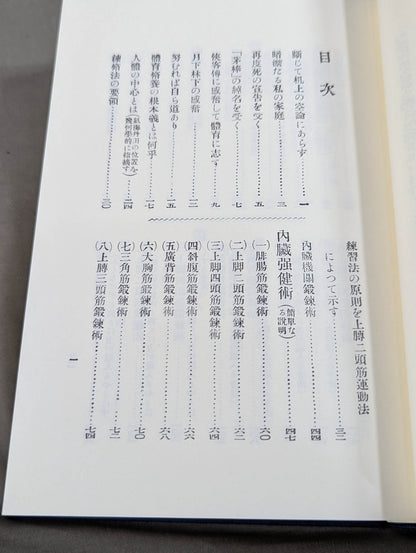 目次
斷じて机上の空論にあらず…………一
暗澹たる私の家庭…………三
再度死の宣吿を受く…………五
「茅棒」の綽名を受く…………七
俠客傳に感奮して體育に志す…………九
月下林下の感奮…………一二
努むれば自ら道あり…………一五
體育脩養の根本義とは何乎…………一七
人體の中心とは(氣海丹田の位置を幾何學的に指摘す)…………二四
練脩法の要領…………三〇
練習法の原則を上膊二頭筋運動法
によつて示す…………三二
內臟機關鍛鍊術…………四四
內臟强健術(簡單なる說明)…………四七
(一)腓腸筋鍛鍊術…………六〇
(二)上脚二頭筋鍛鍊術…………六二
(三)上脚四頭筋鍛鍊術…………六四
(四)斜腹筋鍛鍊術…………六六
(五)廣背筋鍛鍊術…………六八
(六)大胸筋鍛鍊術…………七〇
(七)三角筋鍛鍊術…………七二
(八)上膊三頭筋鍛鍊術…………七四
一